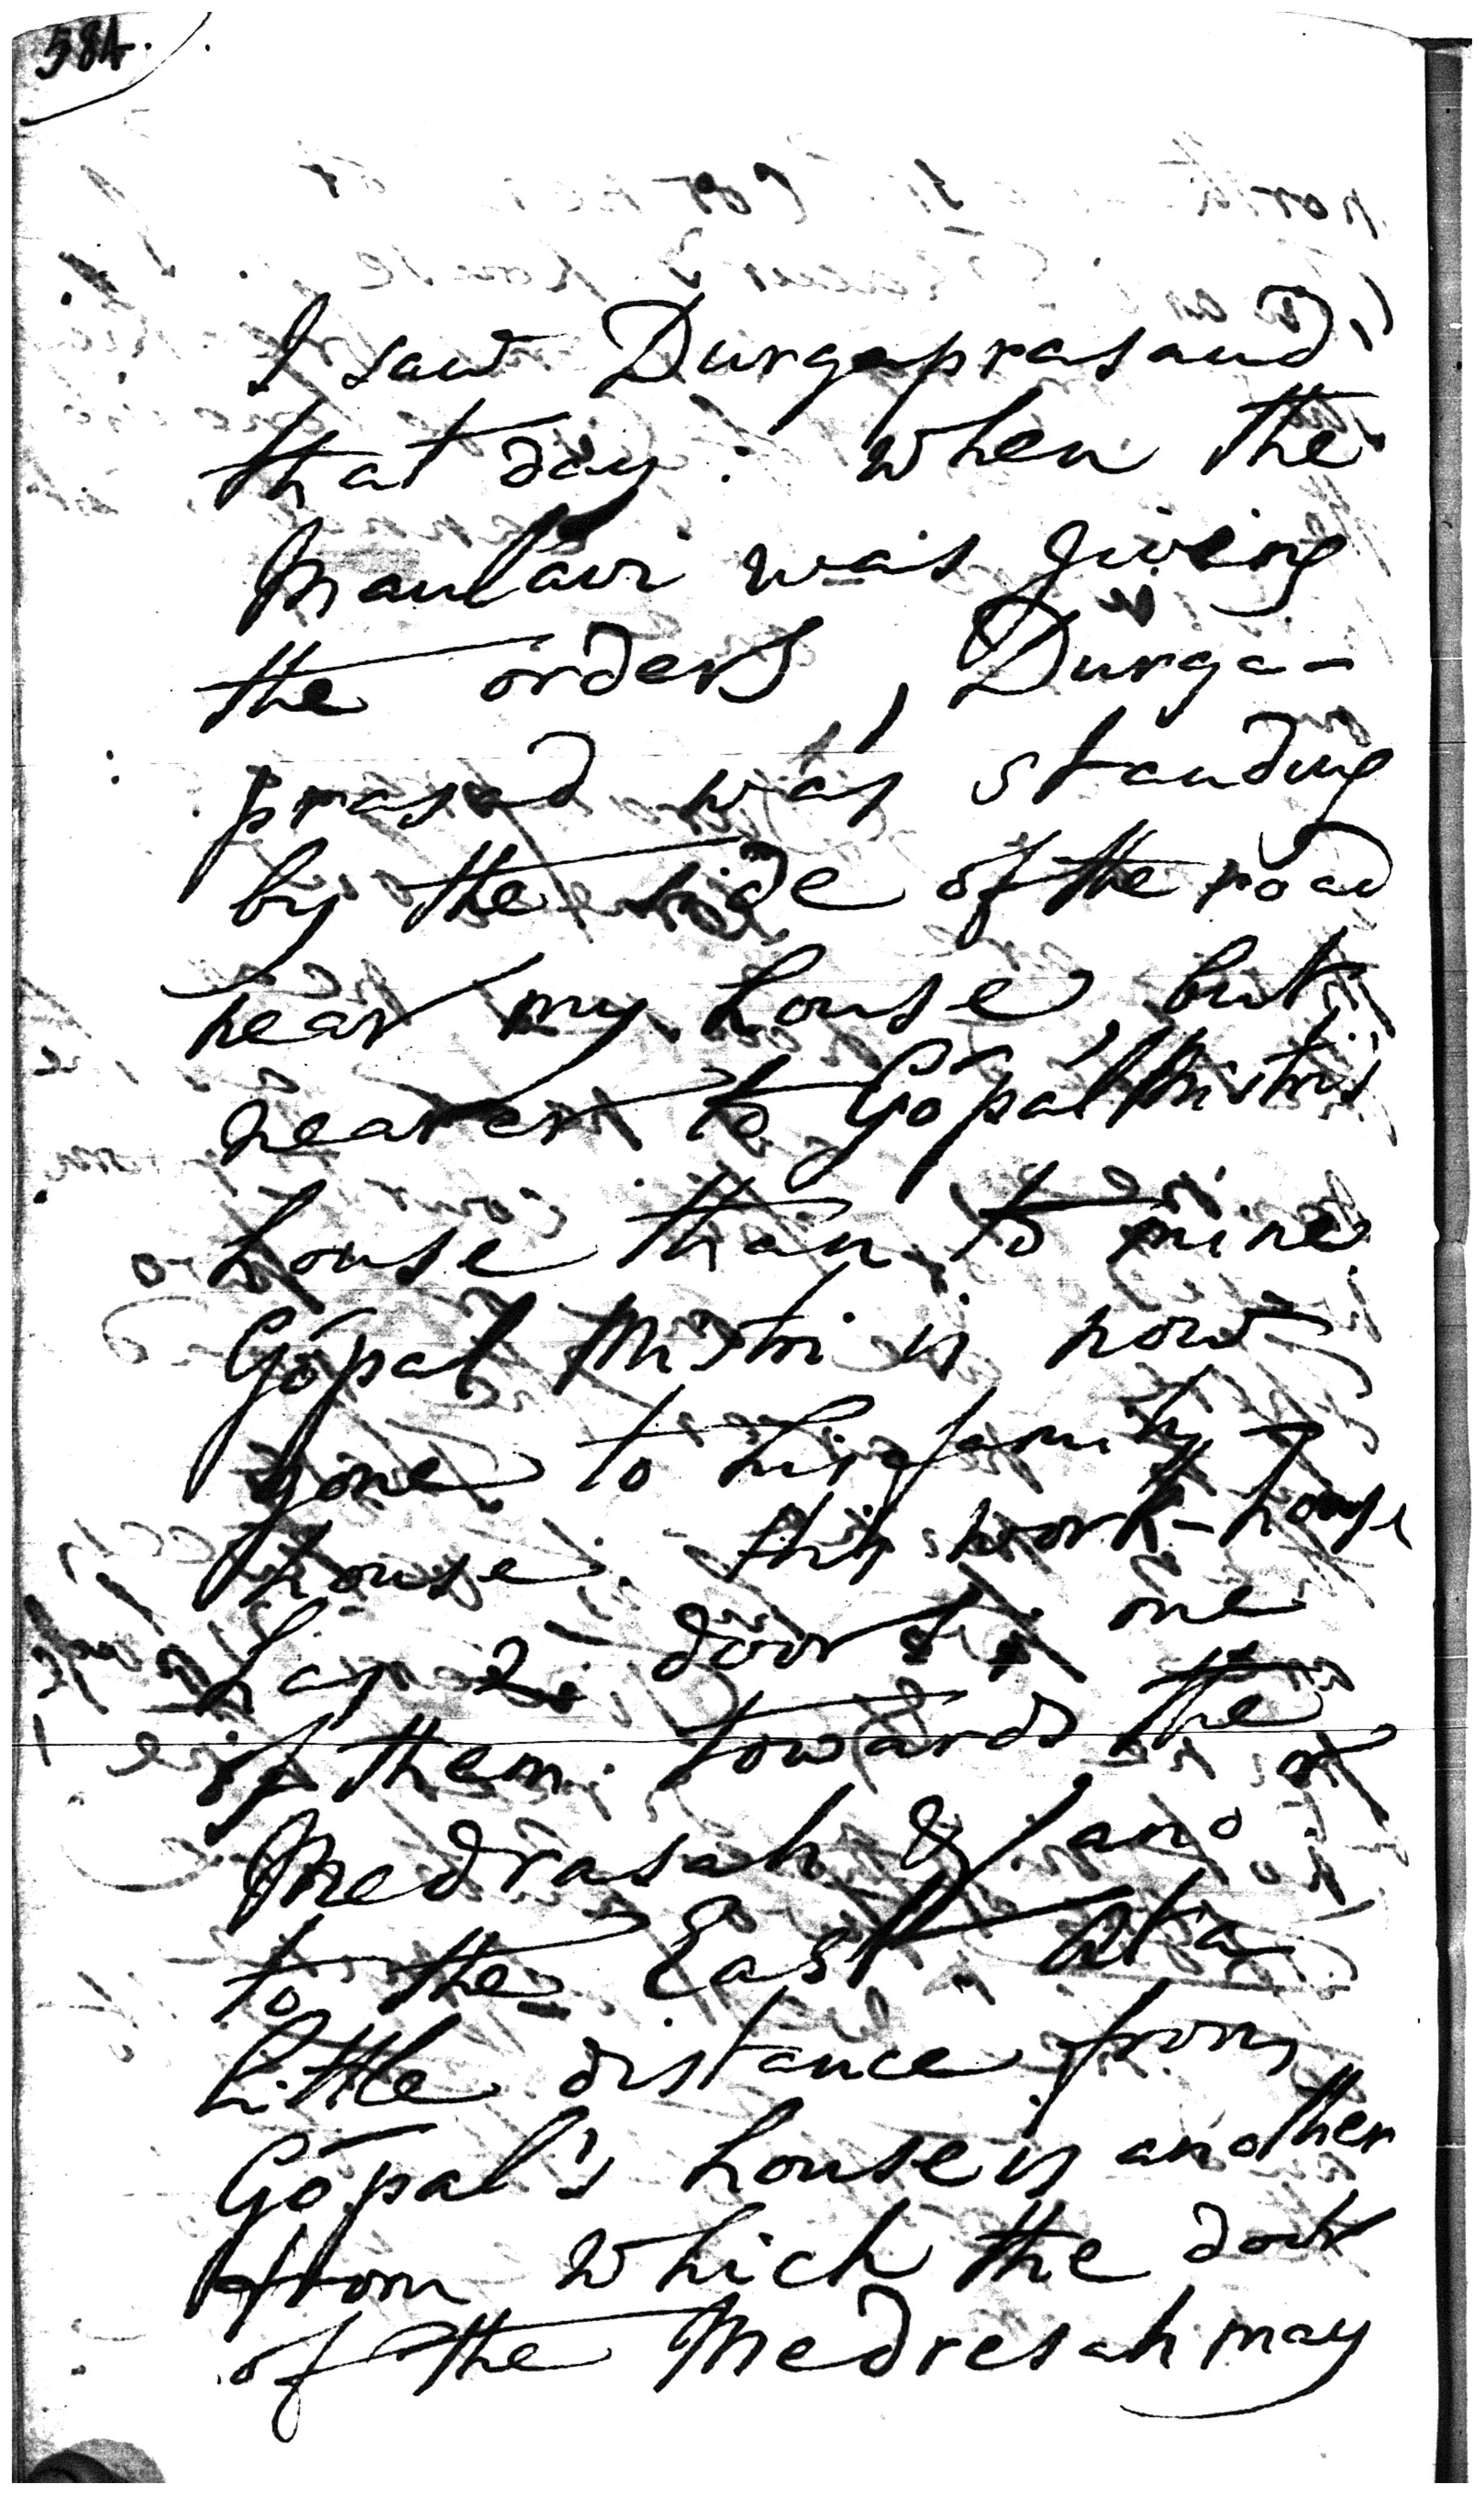 584.
I saw Durgaprasaud,
that day: when the
Maulavi was giving
the orders, Durga-
prasad was standing
by the side of the road
near my house, but
nearer to Gopal Mistri's
house than to mine
Gópal Mistri is now
gone to his family
house. this work-house
has 2 doors one
of them towards the
Medrasah &
to the East. At a
little distance from
Gópal's house is another
from which the door
of the Medresah may